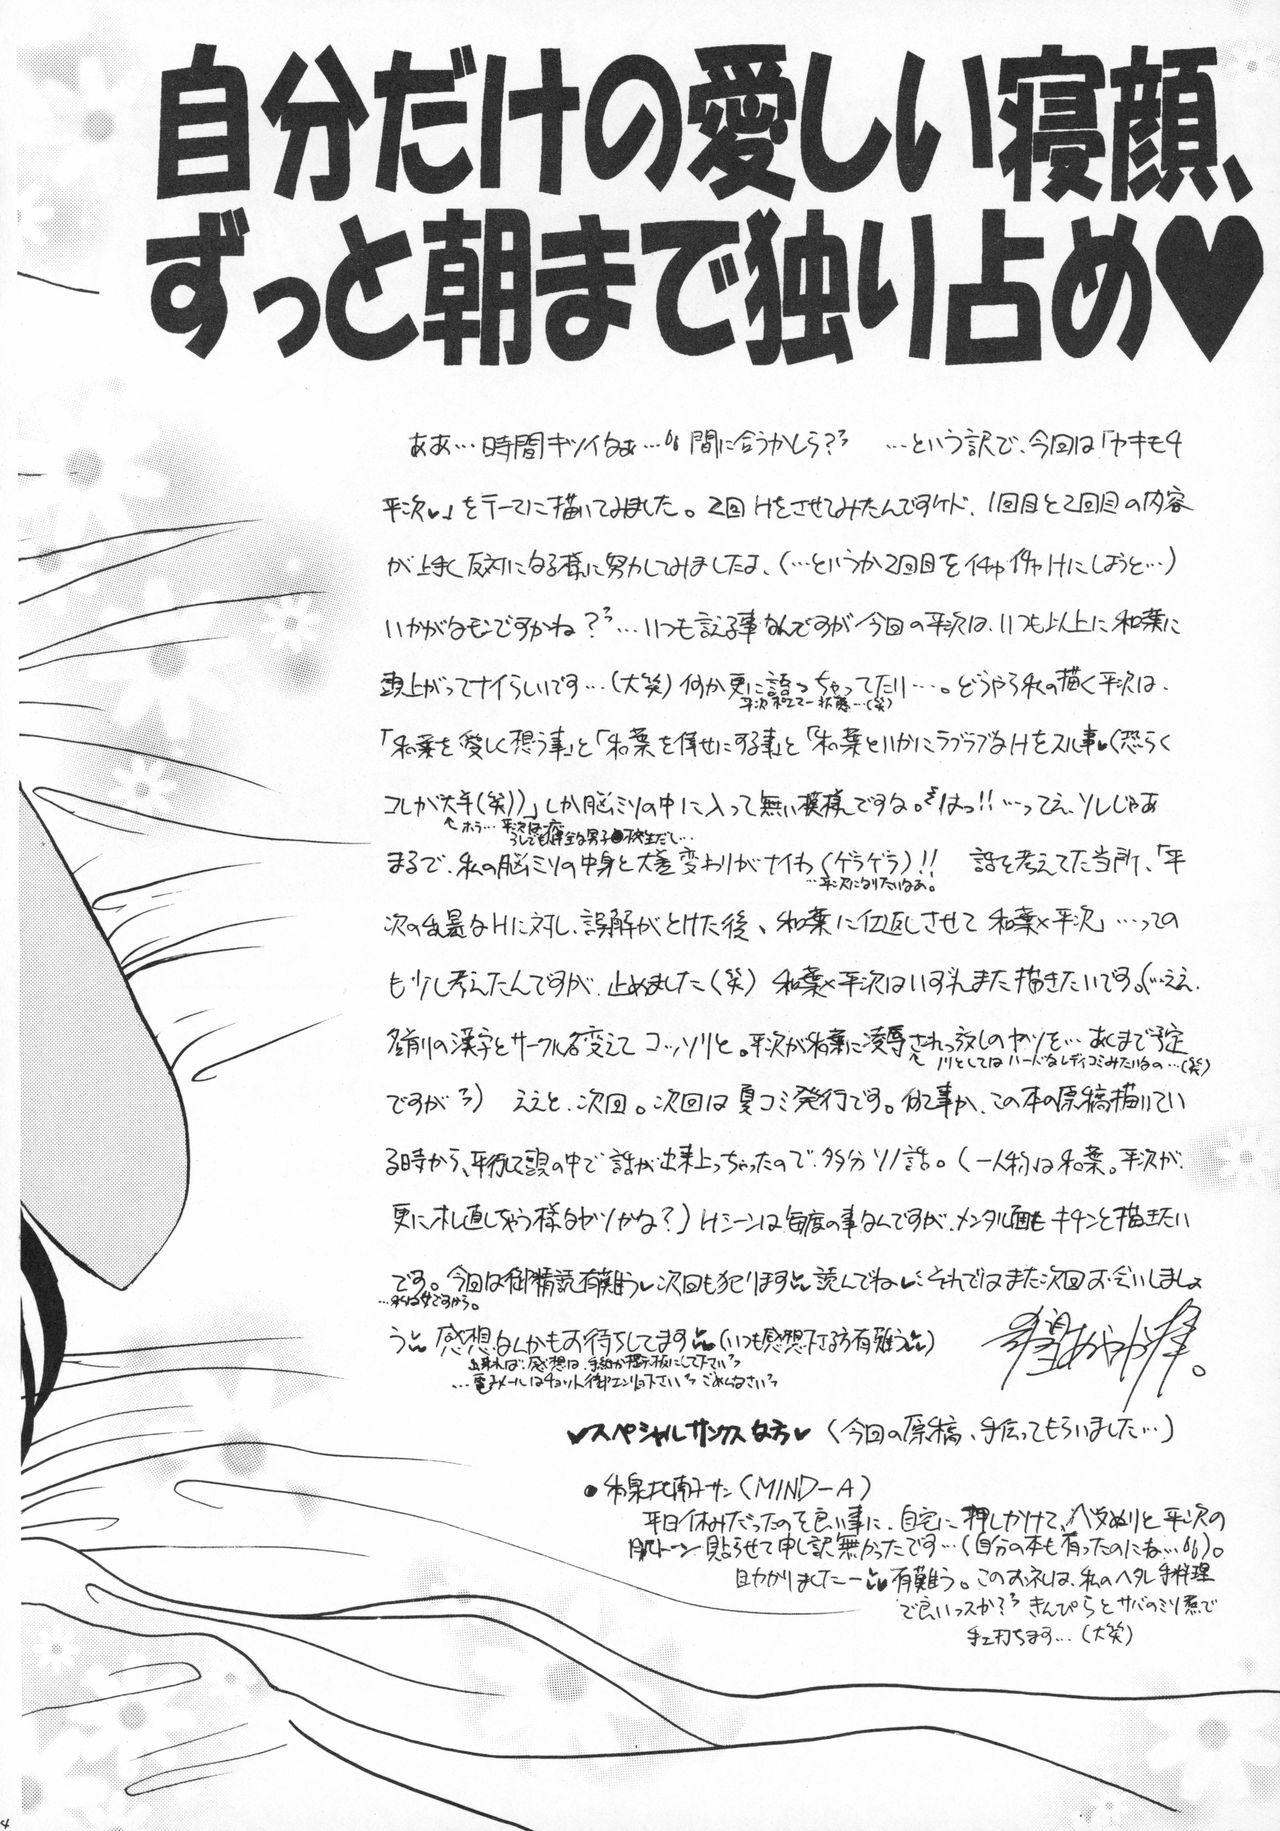 自分だけの愛しい寝顔、
ずっと朝まで独り占め♥
ああ…時間キツイなぁ… 間に合うかしら? …という訳で、今回は「ヤキモチ
平次♥」をテーマに描いてみました。2回Hをさせてみたんですケド、1回目と2回目の内容
が上手く反対になる様に努力してみましたよ、(…というか2回目をイチャイチャHにしようと…)
いかがなモンですかね?…いつも言える事なんですが今回の平次は、いつも以上に和葉に
頭上がってナイらしいです…(大笑)何か更に語っちゃってたり…。どうやら私の描く平次は、
平次ポエマー状態…(笑)
「和葉を愛しく想う事」と「和葉を倖せにする事」と「和葉といかにラブラブなHをスル事♥(恐らく
コレが大半(笑))」しか脳ミソの中に入って無い模様ですな。はっ!!…ってえ、ソレじゃあ
まるで、私の脳ミソの中身と大差変わりがナイわ(ゲラゲラ)!! 話を考えてた当所、「平
…平次になりたいなあ。
次の乱暴なHに対し、誤解がとけた後、和葉に仕返しさせて和葉×平次」…っての
も少し考えたんですが、止めました(笑) 和葉×平次はいずれまた描きたいです。(…ええ、
名前の漢字とサークル名変えてコッソリと。平次が和葉に凌辱されっ放しのヤツを…あくまで予定
ノリとしてはハードなレディコミみたいなの…(笑)
ですが) ええと、次回。次回は夏コミ発行です。何て事か、この本の原稿描いてい
る時から、平行して頭の中で話が出来上っちゃったので、多分ソノ話。(一人称は和葉。平次が、
更にオレ直しちゃう様なヤツかな?)Hシーンは毎度の事なんですが、メンタル面もキチンと描きたい
です。今回は御精読有難う♥次回も犯ります 読んでね♥それではまた次回お会いしましょ
う 感想なんかもお待ちしてます(いつも感想下さる方有難う)
…電子メールはチョット御エンリョ下さい ごめんなさい
♥スペシャルサンクスな方♥ (今回の原稿、手伝ってもらいました…)
●和泉北南子サン(MIND-A)
平日休みだったのを良い事に、自宅に押しかけて、ベタぬりと平次の
肌トーン貼らせて申し訳無かったです…(自分の本も有ったのにな…)。
助かりましたー 有難う。このお礼は、私のヘタレ手料理
で良いっスか? きんぴらとサバのミソ煮で
手を打ちます…(大笑)